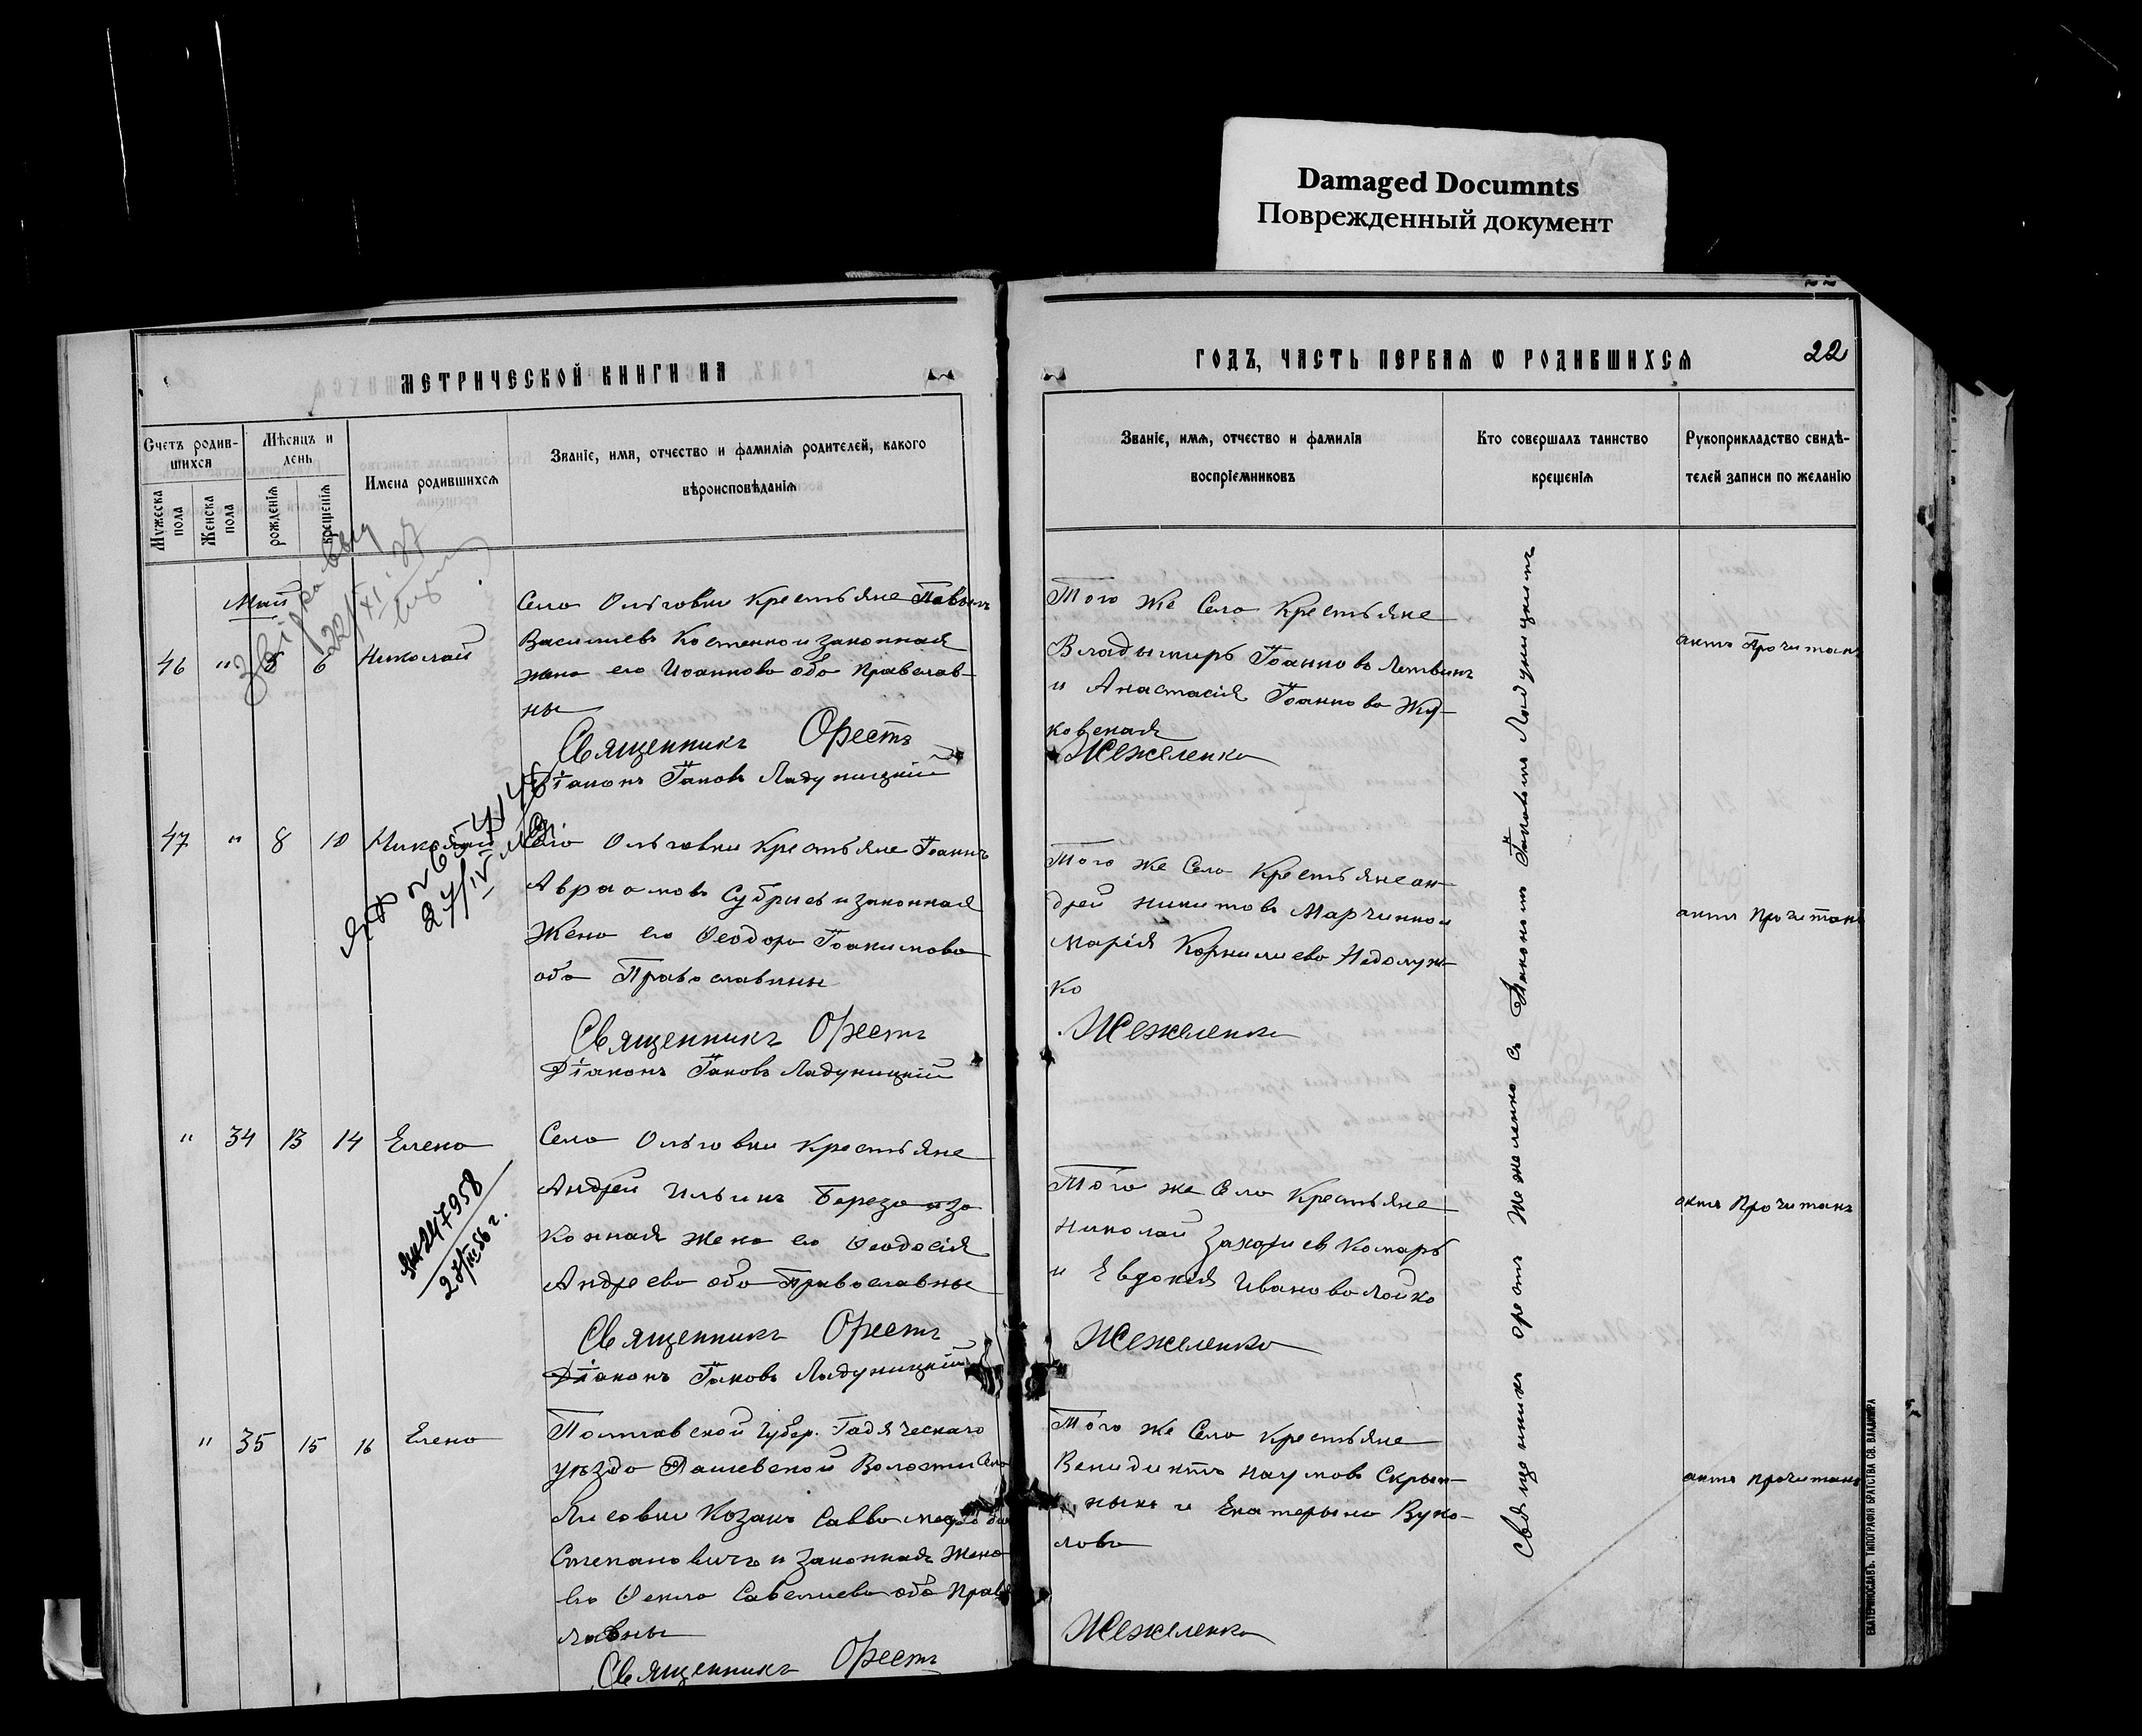 Damaged Documnts
Поврежденный документ
МЕТРИЧЕСКОЙ КНИГИ НА
ГОДЪ, ЧАСТЬ ПЕРВАЯ Ѡ РОДИВШИХСЯ
22
Счетъ родив-
шихся
Мужеска пола
Женска пола
Мѣсяцъ и
день
рожденія
крещенія
Имена родившихся
Званіе, имя, отчество и фамилія родителей, какого
вѣроисповѣданія
Званіе, имя, отчество и фамилія
воспріемниковъ
Кто совершалъ таинство
крещенія
Рукоприкладство свидѣ-
телей записи по желанію
Май
46 " 5 6 Николай
Село Ольговки Крестьяне Павелъ
Васильевъ Костенко и законная
жена его Иоаннова оба Православ-
ны
Священникъ Орестъ
Діаконъ Іаковъ Ладуницкій
Того же Село Крестьяне
Владымиръ Іоанновъ Летвинъ
и Анастасія Іоаннова Жу-
ковская
Межеленко
актъ Прочитанъ
22/XI 27
47 " 8 10 Николай
Село Ольговки Крестьяне Іоаннъ
Авраамовъ и законная
Жена его Ѳеодора Іоакимова
оба Православны
Священникъ Орестъ
Діаконъ Іаковъ Ладуницкій
Того же Село Крестьяне Ан-
дрей Никитовъ Марченко и
Марія Корнилиева Недолуж-
ко
Межеленко
актъ Прочитанъ
27/IV
" 34 13 14 Елена
Село Ольговки Крестьяне
Андрей Ильинъ Береза и за
конная жена его Ѳеодосія
Андреева оба Православны
Священникъ Орестъ
Діаконъ Іаковъ Ладуницкій
Того же Село Крестьяне
Николай Захариев Комаръ
и Евдокія Иванова Лойко
Межеленко
актъ Прочитанъ
247958
56 г.
" 35 15 16 Елена
Полтавской Губер. Гадяческаго
уѣзда Рашевской Волости Село
Лисовки Козакъ Савва
Степановичъ и законная Жена
его Ѳекла Савелиева оба Право
лавны
Священникъ Орестъ
Того же Село Крестьяне
Венидиктъ Наумовъ Скрып-
ныкъ и Екатерына Вуко-
лова
Межеленко
актъ Прочитанъ
Священникъ Орестъ Межеленко съ Діакономъ Іаковомъ Ладуницкимъ
ЕКАТЕРИНОСЛАВЪ. ТИПОГРАФІЯ БРАТСТВА СВ. ВЛАДИМІРА